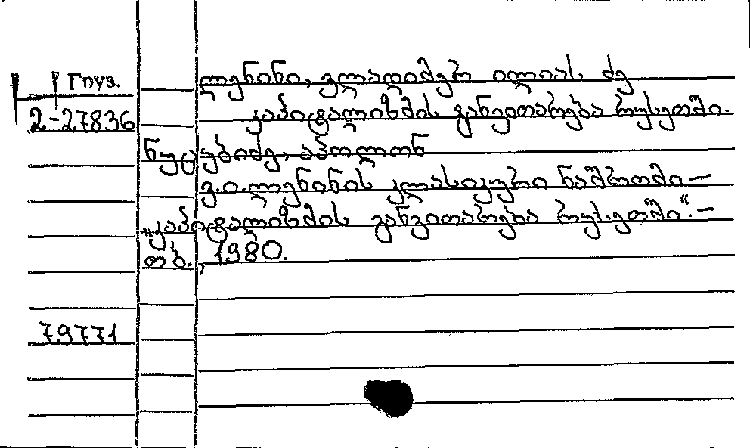 Груз.
2-27836
ლენინი, ვლადიმერ ილიას ძე
კაპიტალიზმის განვითარება რუსეთში.
ნუცუბიძე, აპოლონ
ვ.ი.ლენინის კლასიკური ნაშრომი —
„კაპიტალიზმის განვითარება რუსეთში“. —
თბ., 1980.
79771